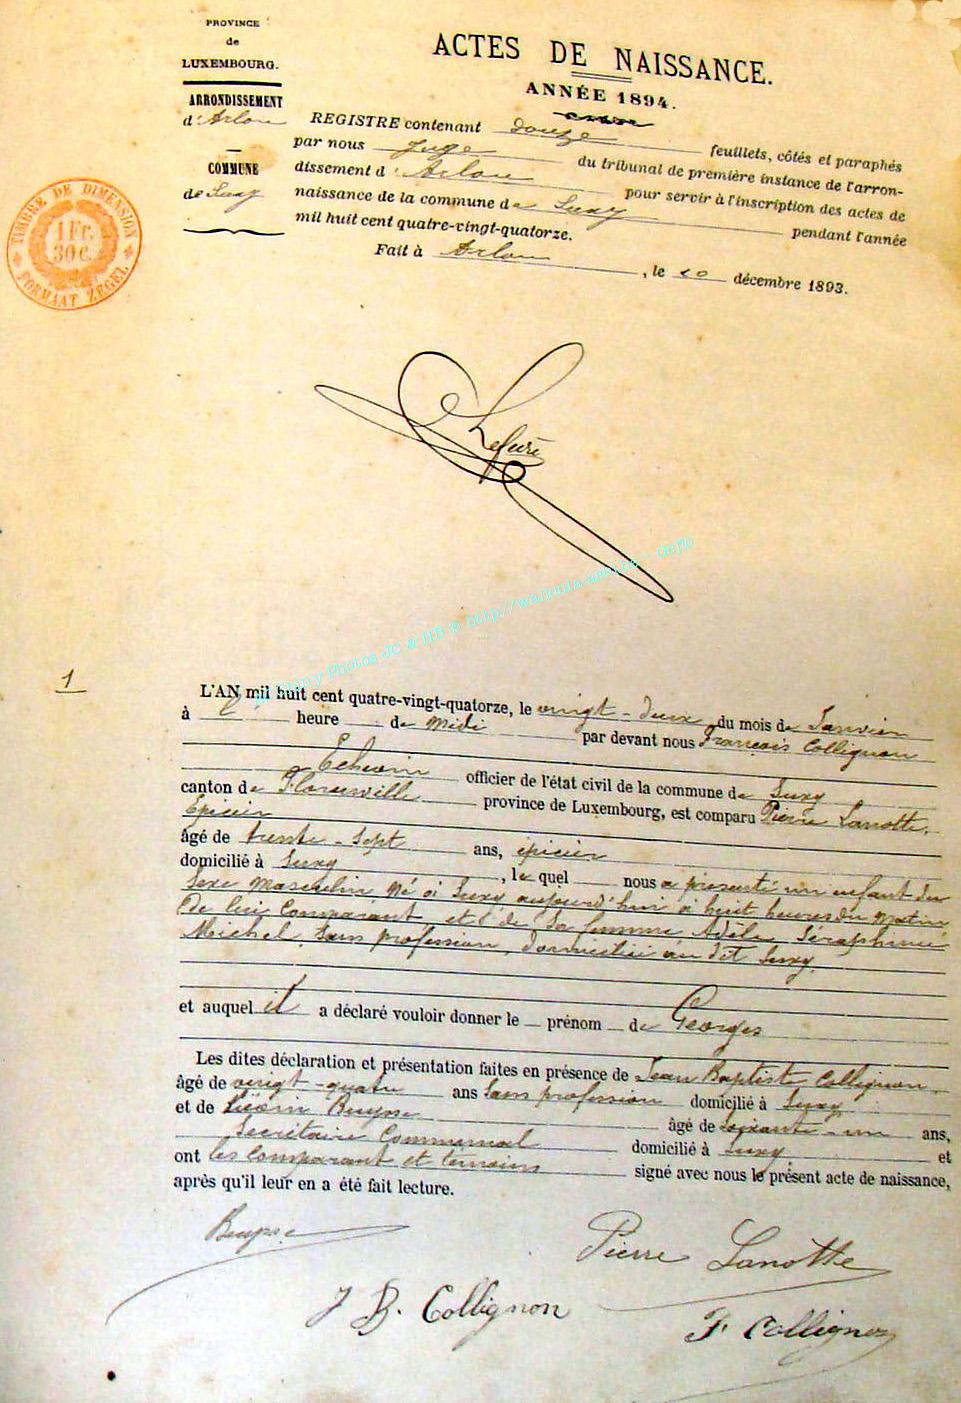 PROVINCE
de
LUXEMBOURG.
ARRONDISSEMENT
d'Arlon
COMMUNE
de Suxy
TIMBRE DE DIMENSION
1 Fr.
30 c.
FORMAAT ZEGEL
ACTES DE NAISSANCE.
ANNÉE 1894.
REGISTRE contenant douze feuillets, côtés et paraphés
par nous Juge du tribunal de première instance de l'arron-
dissement d'Arlon pour servir à l'inscription des actes de
naissance de la commune de Suxy pendant l'année
mil huit cent quatre-vingt-quatorze.
Fait à Arlon, le 20 décembre 1893.
1
Photos JC & HB © http://wallonia-
L'AN mil huit cent quatre-vingt-quatorze, le vingt-deux du mois de Janvier
à heure de Midi par devant nous François Collignon
Echevin officier de l'état civil de la commune de Suxy
canton de Florenville province de Luxembourg, est comparu Pierre Lanotte,
Épicier
âgé de trente-sept ans, épicier
domicilié à Suxy, lequel nous a présenté un enfant du
Sexe Masculin Né à Suxy aujourd'hui à huit heures du matin
de lui Comparant et de Sa femme Adèle Séraphine
Michel, Sans profession, domiciliée au dit Suxy
et auquel il a déclaré vouloir donner le prénom de Georges
Les dites déclaration et présentation faites en présence de Jean Baptiste Collignon
âgé de vingt-quatre ans Sans profession domicilié à Suxy
et de Buysse âgé de Soixante-un ans,
Secrétaire Communal domicilié à Suxy et
ont les Comparant et témoins signé avec nous le présent acte de naissance,
après qu'il leur en a été fait lecture.
Buysse
Pierre Lanotte
J B. Collignon
F. Collignon